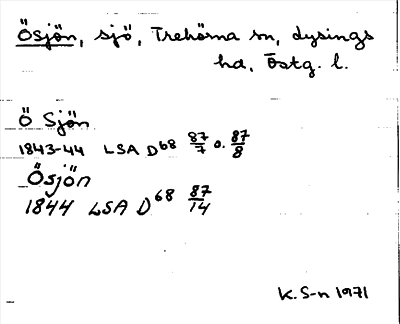 Ösjön, sjö, Trehörna sn, Lysings
hd, Östg. l.
Ö Sjön
1843-44 LSA D68 87/7 o. 87/8
Ösjön
1844 LSA D68 87/14
K. S-n 1971